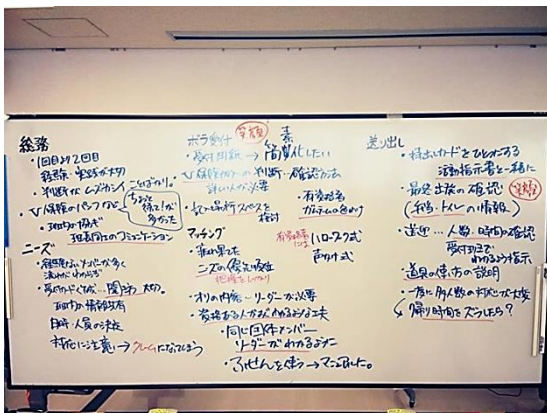 総務
・1回目より2回目
経験・実践が大切
・判断がムズカシイ
ことばかり。
・V保険のパンフなど
ちょっと待って!が
多かった
・班内の協力
班長同士のコミュニケーション
ニーズ
・経験ないメンバーが多く
流れがわからず
班内の情報共有
日時・人員の決定
対応に注意→クレームになってしまう
ボラ受付
笑顔
・受付用紙→簡素化したい
・V保険加入の判断・確認方法
詳しい人が必要
・記入場所スペースを
検討
・有資格者
ガムテームの色わけ
マッチング
ニーズの優先順位
有資格者
には
ハローワーク式
声かけ式
・オリの内容→リーダーが必要
・資格ある人がわかるよう工夫
・同じ団体メンバー
リーダーがわかるように
・ふせんを使う→マニュアルに。
送り出し
・提出カードをひとつにする
活動指示書と一緒に
・最終出発の確認
笑顔
(弁当・トイレの情報)
・送迎…人数・時間の確認
受付段階で
わかるよう指示
・道具の使い方の説明
・一度に多人数の対応が大変
帰り時間をズラしたら?